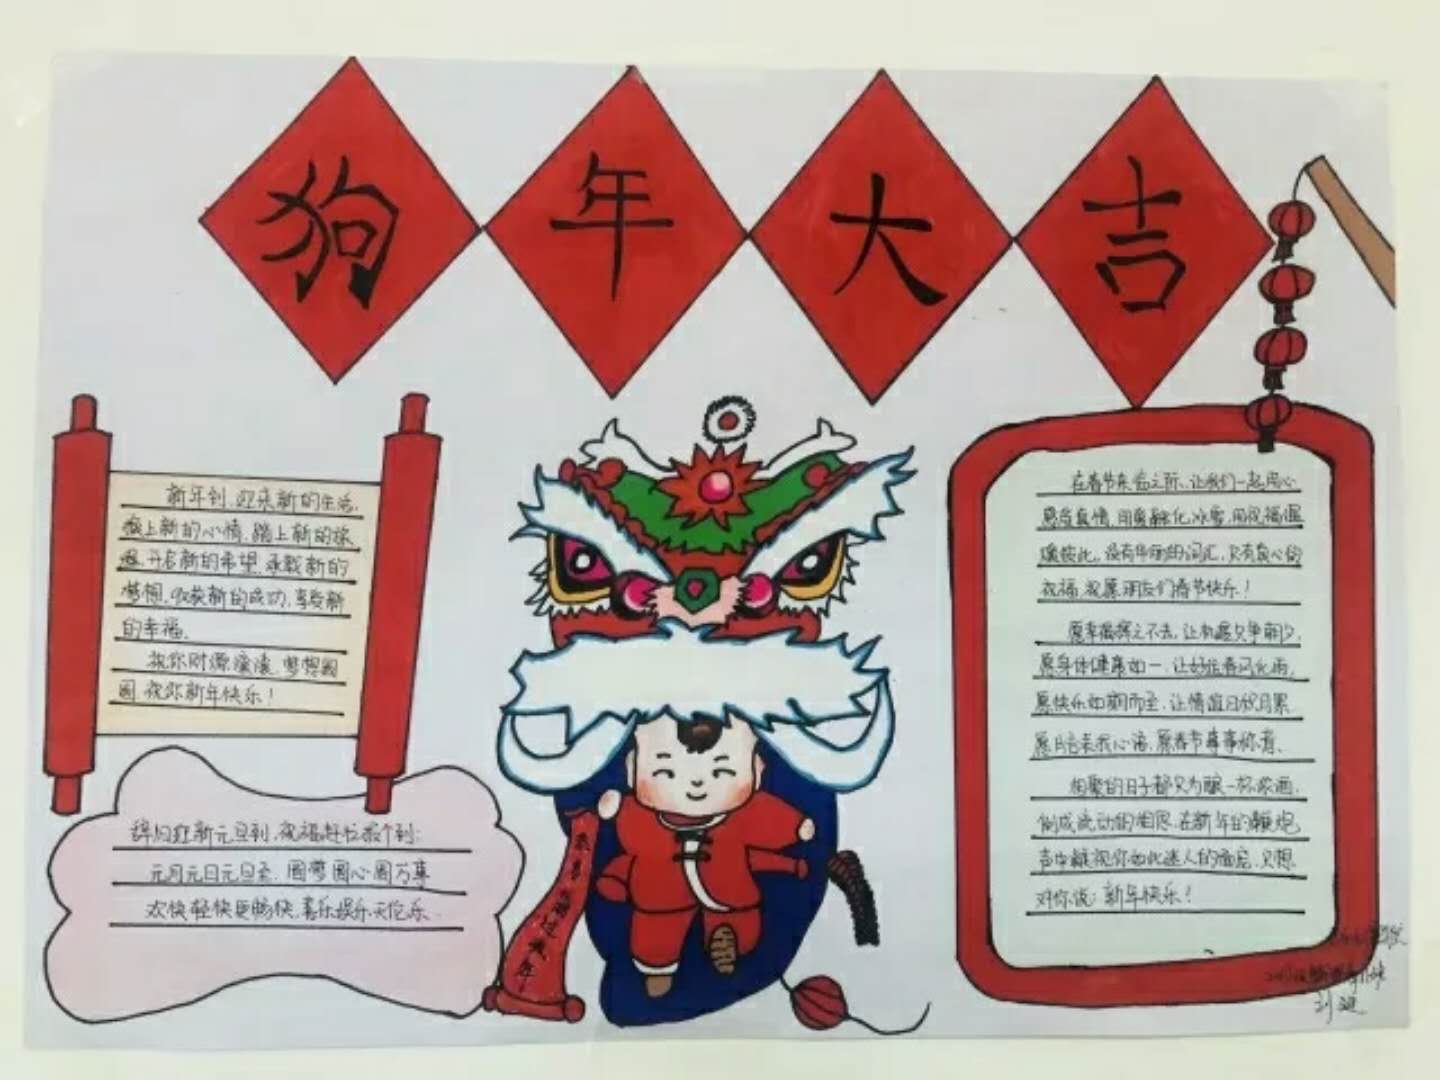 狗年大吉
新年到,迎来新的生活,
上新的心情,踏上新的旅
开启新的希望,承载新的
梦想,收获新的成功,享受新
的幸福。
祝你财源滚滚,梦想圆
圆,祝你新年快乐!
辞旧迎新元旦到,祝福赶忙来个到:
元月元日元旦至,圆梦圆心圆万事
欢快轻快更畅快,喜乐娱乐天伦乐
在春节来临之际,让我们一起用心
感受真情,用爱融化冰雪,用祝福温
暖彼此,没有华丽的词汇,只有真心的
祝福,祝愿朋友们春节快乐!
愿幸福挥之不去,让机遇只争朝夕,
愿身体健康如一,让好运春风化雨,
愿快乐如期而至,让情谊日积月累
愿片语来我心语,愿春节事事如意、
相聚的日子都只为酿一杯浓酒,
制成流动的相思,在新年的鞭炮
声中凝视你如此迷人的酒窝,只想
对你说:新年快乐!